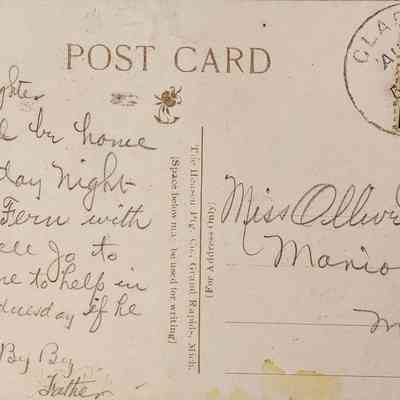 POST CARD
CLAR
AU
ghter
d be home
day Night
Fern with
ell Jo to
me to help in
dnesday if he
By By
Father
The Henson Pub. Co., Grand Rapids, Mich.
(Space below may be used for writing)
(For Address Only)
Miss Olive
Manio
M